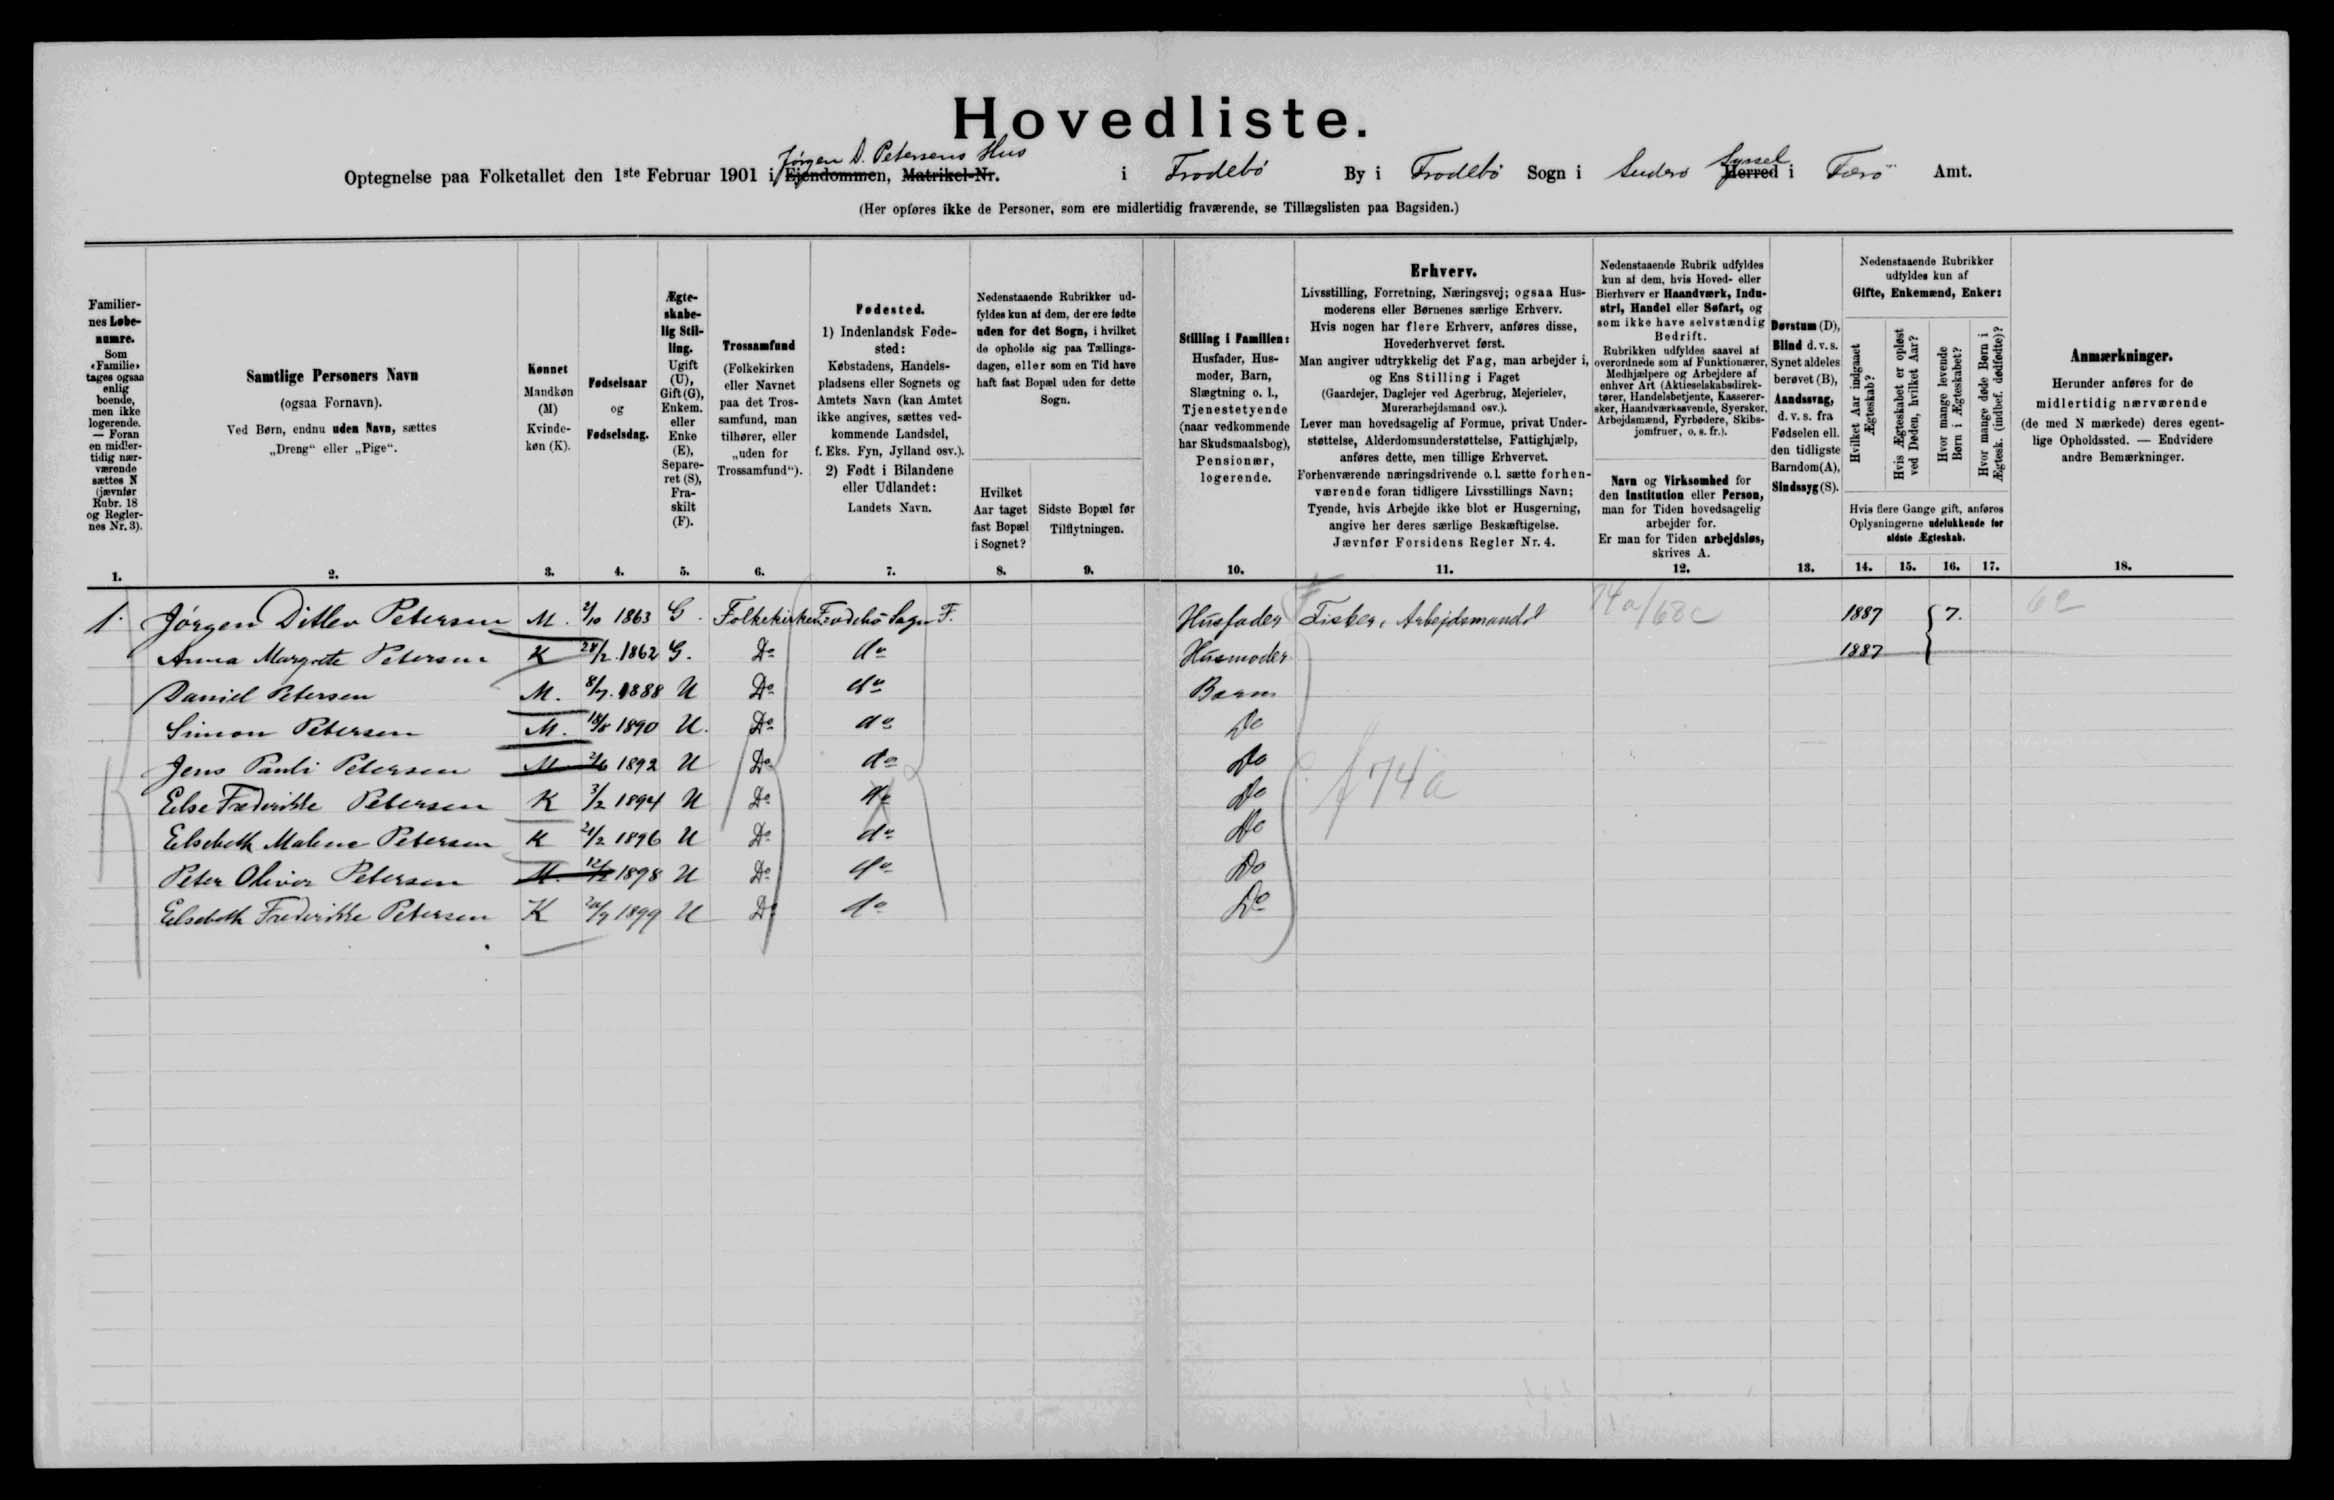 Hovedliste.
Jørgen D. Petersens Hus
Syssel
Optegnelse paa Folketallet den 1ste Februar 1901 i Ejendommen, Matrikel-Nr. i Frodebø By i Frodebø Sogn i Suderø Herred i Færø Amt.
(Her opføres ikke de Personer, som ere midlertidig fraværende, se Tillægslisten paa Bagsiden.)
Familiernes Løbenumre.
Som «Familie» tages ogsaa enlig boende, men ikke logerende. — Foran en midlertidig nærværende sættes N (jævnfør Rubr. 18 og Reglernes Nr. 3).
Samtlige Personers Navn
(ogsaa Fornavn).
Ved Børn, endnu uden Navn, sættes
„Dreng“ eller „Pige“.
Kønnet
Mandkøn (M) Kvindekøn (K).
Fødselsaar
og
Fødselsdag.
Ægteskabelig Stilling.
Ugift (U), Gift (G), Enkem. eller Enke (E), Separeret (S), Fraskilt (F).
Trossamfund
(Folkekirken eller Navnet paa det Trossamfund, man tilhører, eller „uden for Trossamfund“).
Fødested.
1) Indenlandsk Fødested:
Købstadens, Handelspladsens eller Sognets og Amtets Navn (kan Amtet ikke angives, sættes vedkommende Landsdel, f. Eks. Fyn, Jylland osv.).
2) Født i Bilandene eller Udlandet:
Landets Navn.
Nedenstaaende Rubrikker udfyldes kun af dem, der ere fødte uden for det Sogn, i hvilket de opholde sig paa Tællingsdagen, eller som en Tid have haft fast Bopæl uden for dette Sogn.
Hvilket Aar taget fast Bopæl i Sognet?
Sidste Bopæl før Tilflytningen.
Stilling i Familien:
Husfader, Husmoder, Barn, Slægtning o. l., Tjenestetyende (naar vedkommende har Skudsmaalsbog), Pensionær, logerende.
Erhverv.
Livsstilling, Forretning, Næringsvej; ogsaa Husmoderens eller Børnenes særlige Erhverv.
Hvis nogen har flere Erhverv, anføres disse, Hovederhvervet først.
Man angiver udtrykkelig det Fag, man arbejder i, og Ens Stilling i Faget
(Gaardejer, Daglejer ved Agerbrug, Mejerielev, Murerarbejdsmand osv.).
Lever man hovedsagelig af Formue, privat Understøttelse, Alderdomsunderstøttelse, Fattighjælp, anføres dette, men tillige Erhvervet.
Forhenværende næringsdrivende o. l. sætte forhenværende foran tidligere Livsstillings Navn;
Tyende, hvis Arbejde ikke blot er Husgerning, angive her deres særlige Beskæftigelse.
Jævnfør Forsidens Regler Nr. 4.
Nedenstaaende Rubrik udfyldes kun af dem, hvis Hoved- eller Bierhverv er Haandværk, Industri, Handel eller Søfart, og som ikke have selvstændig Bedrift.
Rubrikken udfyldes saavel af overordnede som af Funktionærer, Medhjælpere og Arbejdere af enhver Art (Aktieselskabsdirektører, Handelsbetjente, Kasserersker, Haandværkssvende, Syersker, Arbejdsmænd, Fyrbødere, Skibsjomfruer, o. s. fr.).
Navn og Virksomhed for den Institution eller Person, man for Tiden hovedsagelig arbejder for.
Er man for Tiden arbejdsløs, skrives A.
Døvstum (D),
Blind d. v. s. Synet aldeles berøvet (B),
Aandssvag, d. v. s. fra Fødselen ell. den tidligste Barndom (A),
Sindssyg (S).
Nedenstaaende Rubrikker udfyldes kun af
Gifte, Enkemænd, Enker:
Hvilket Aar indgaaet Ægteskab?
Hvis Ægteskabet er opløst ved Døden, hvilket Aar?
Hvor mange levende Børn i Ægteskabet?
Hvor mange døde Børn i Ægtesk. (indbef. dødfødte)?
Hvis flere Gange gift, anføres Oplysningerne udelukkende for sidste Ægteskab.
Anmærkninger.
Herunder anføres for de midlertidig nærværende (de med N mærkede) deres egentlige Opholdssted. — Endvidere andre Bemærkninger.
1. 2. 3. 4. 5. 6. 7. 8. 9. 10. 11. 12. 13. 14. 15. 16. 17. 18.
1. Jørgen Ditlev Petersen M. 2/10 1863 G. Folkekirken Frodebø Sogn F. Husfader Fisker, Arbejdsmand 74a/68c 1887 7. 6e
Anna Margrete Petersen K 28/2 1862 G. Do do Husmoder 1887
Daniel Petersen M. 8/7. 1888 U Do do Barn
Simon Petersen M. 18/8 1890 U. Do do Do
Jens Pauli Petersen M 1892 U Do do Do
Else Frederikke Petersen K 3/2 1894 U Do do Do f 74a
Elsebeth Malene Petersen K 21/2 1896 U Do do Do
Peter Oliver Petersen M. 12/2 1898 U Do do Do
Elsebeth Frederikke Petersen K 20/9 1899 U Do do Do